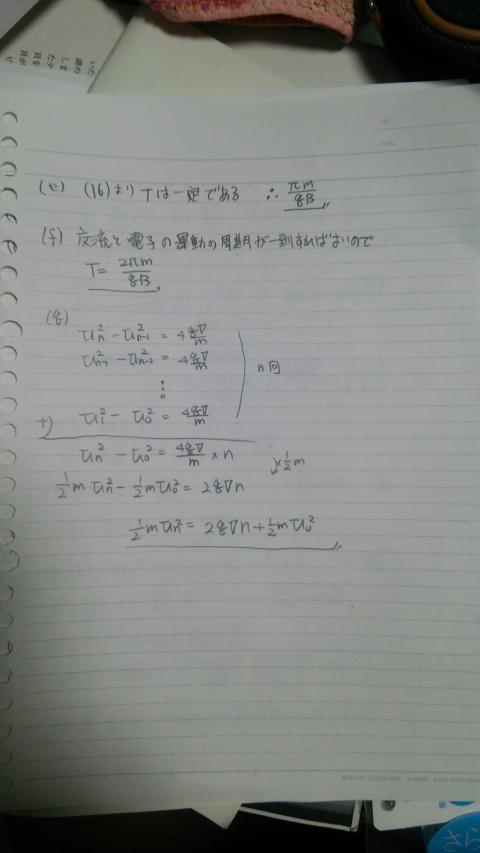 (e) (16)より Tは一定である ∴ πm/qB
(f) 交流と電子の運動の周期が一致すればよいので
T = 2πm/qB
(g)
v_n^2 - v_{n-1}^2 = 4qV/m
v_{n-1}^2 - v_{n-2}^2 = 4qV/m
⋮
n回
+) v_1^2 - v_0^2 = 4qV/m
v_n^2 - v_0^2 = 4qV/m × n
×1/2 m
1/2 m v_n^2 - 1/2 m v_0^2 = 2qVn
1/2 m v_n^2 = 2qVn + 1/2 m v_0^2
さら